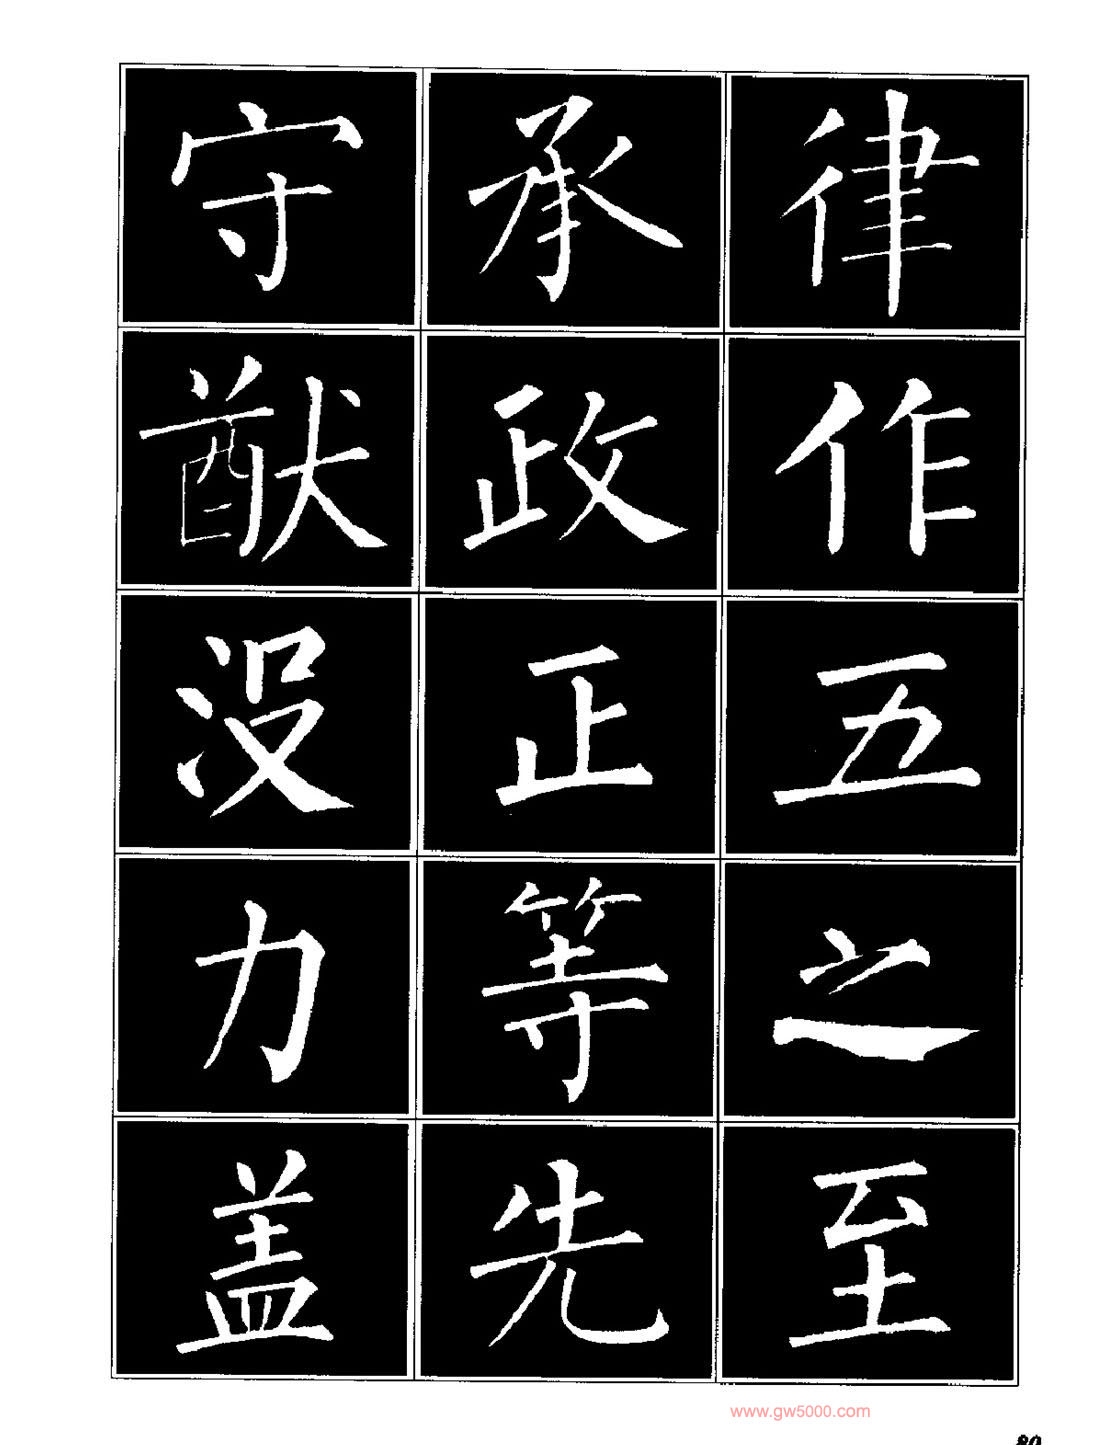 律作五之至
承政正等先
守猷没力盖
www.gw5000.com
89